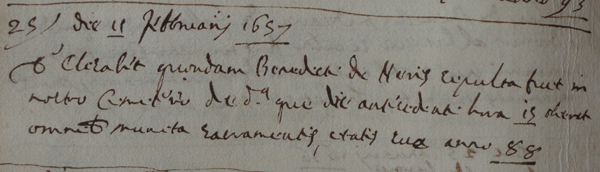 25) die 11 Febbruarij 1657
Elisabet quondam Benedicti de Neris sepulta fuit in
nostro Cimiterio de d.a que die antecedente hora 15 obierat
omnib munita sacramentis, etatis sue anno 88